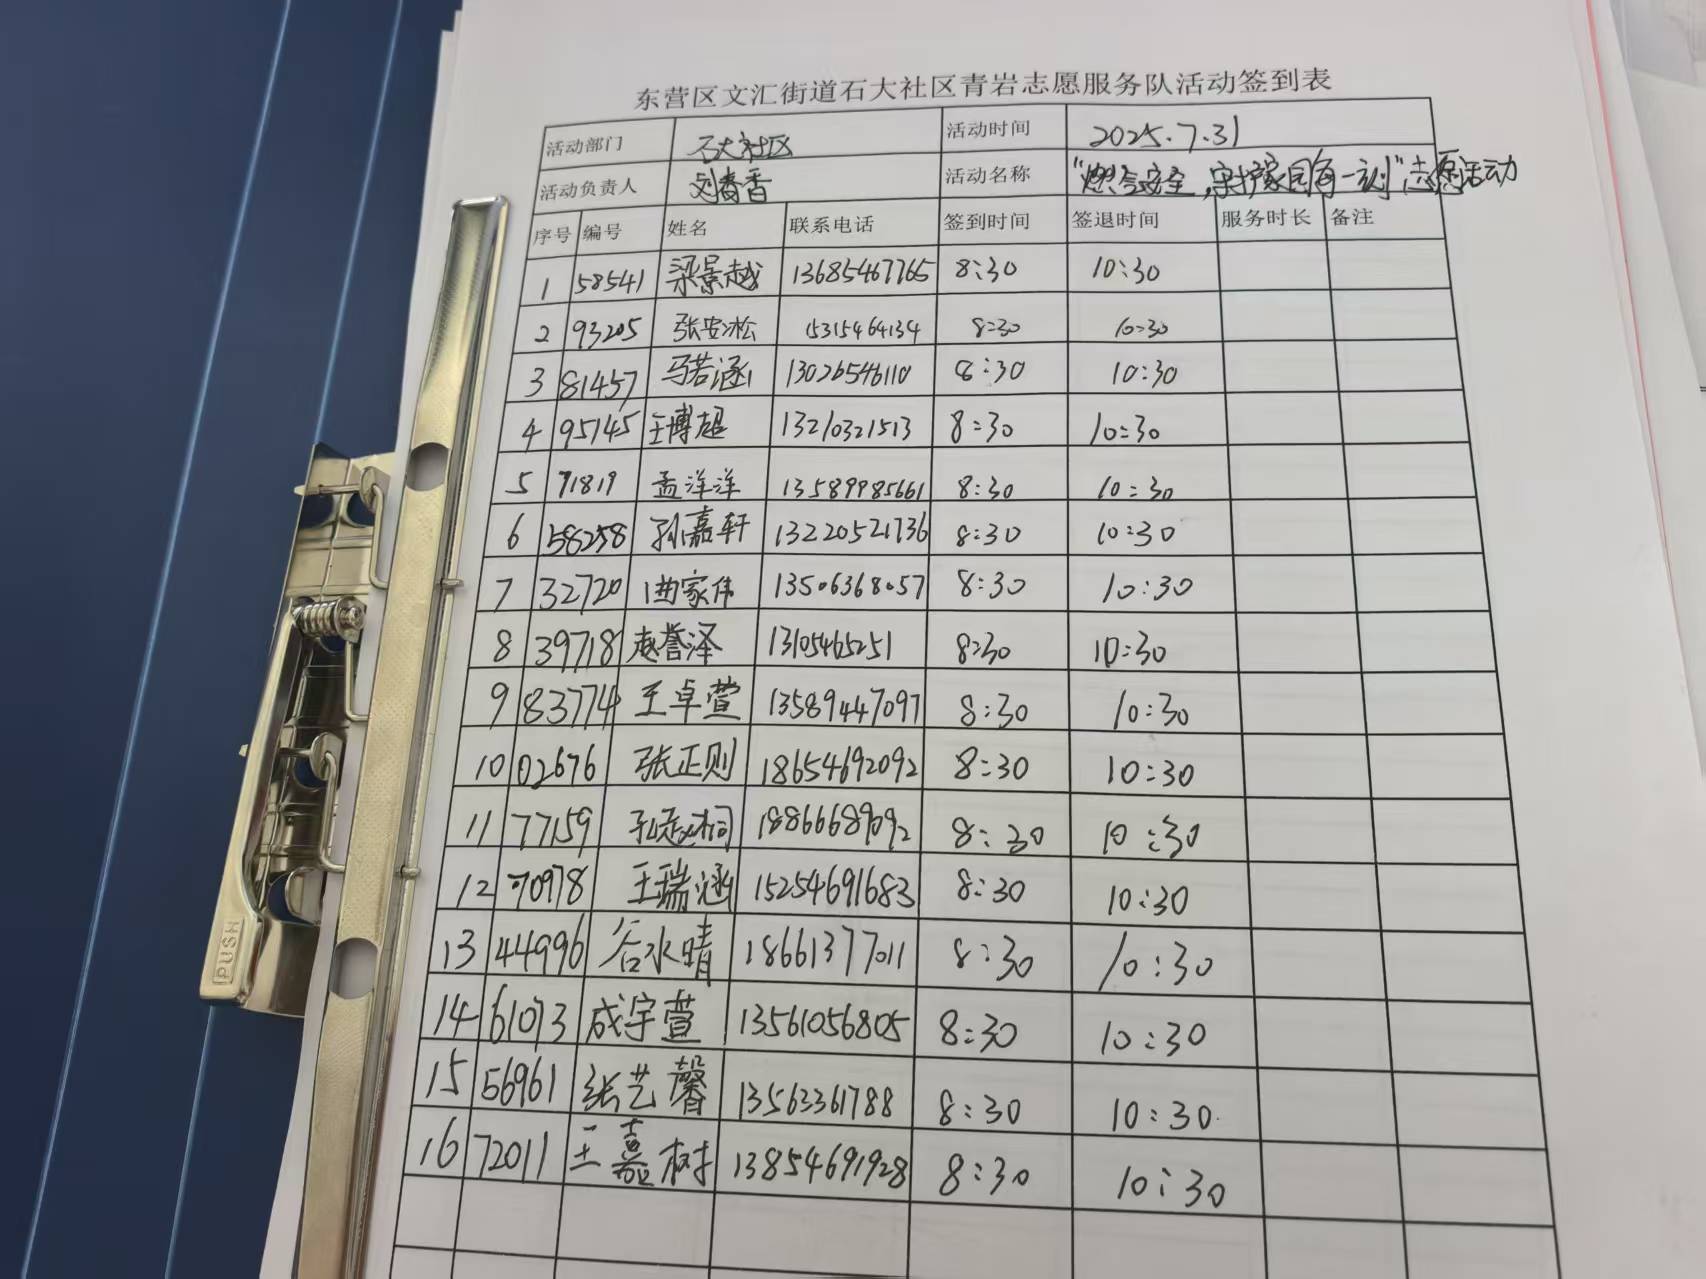 东营区文汇街道石大社区青岩志愿服务队活动签到表
活动部门 石大社区 活动时间 2025.7.31
活动负责人 刘春香 活动名称 "燃气安全,守护家园每一刻"志愿活动
序号 编号 姓名 联系电话 签到时间 签退时间 服务时长 备注
1 58541 梁景越 13685467765 8:30 10:30
2 93205 张安淞 15315464134 8:30 10:30
3 81457 马若涵 13026546110 8:30 10:30
4 95145 王博超 13210321513 8:30 10:30
5 71819 孟洋洋 13589985661 8:30 10:30
6 58258 孙嘉轩 13220521736 8:30 10:30
7 32720 曲家伟 13506368057 8:30 10:30
8 39718 赵誉泽 13105465251 8:30 10:30
9 83774 王卓萱 13589447097 8:30 10:30
10 02676 张正则 18654692092 8:30 10:30
11 77159 18866689092 8:30 10:30
12 70978 王瑞涵 15254691683 8:30 10:30
13 44996 谷水晴 18661377011 8:30 10:30
14 61073 成宇萱 13561056805 8:30 10:30
15 56961 张艺馨 13563361788 8:30 10:30
16 72011 王嘉树 13854691928 8:30 10:30
PUSH